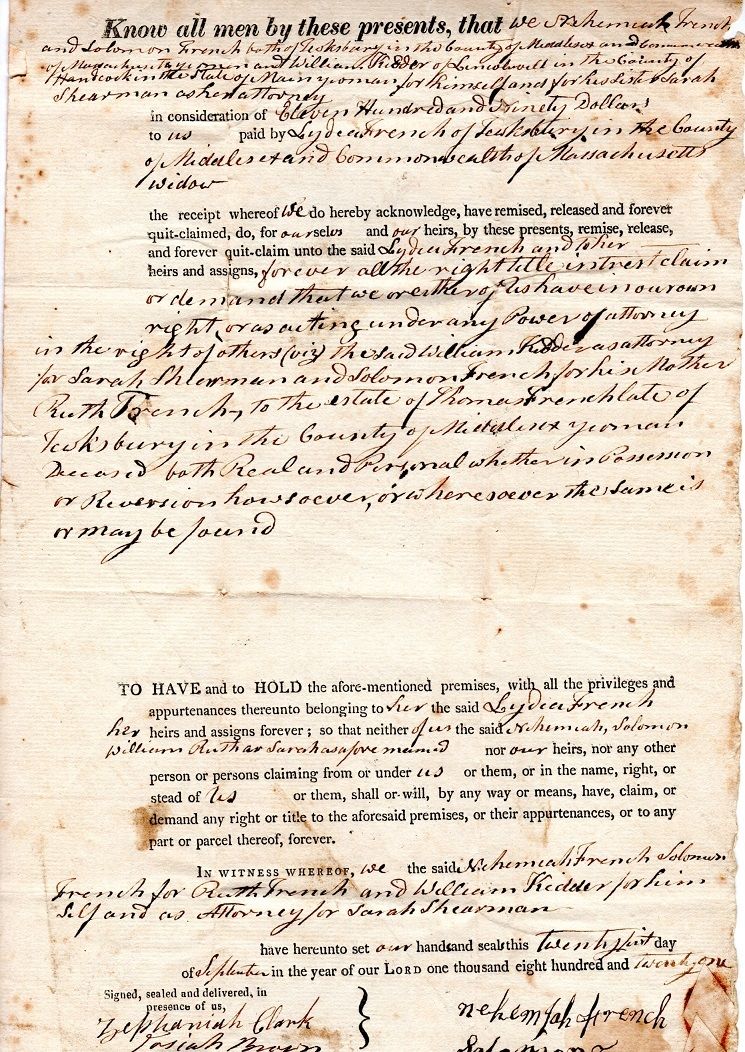 Know all men by these presents, that we Nehemiah French
and Solomon French both of Teeksbury in the County of Middlesex and Commonwealth
of Massachusetts yeomen and William Kidder of in the County of
Handcock in the State of Main yeoman for himself and for his Sister Sarah
Shearman as her attorney
in consideration of Eleven Hundred and Ninety Dollars
to us paid by Lydea French of Teeksbury in the County
of Middlesex and Commonwealth of Massachusetts
widow
the receipt whereof we do hereby acknowledge, have remised, released and forever
quit-claimed, do, for ourselvs and our heirs, by these presents, remise, release,
and forever quit-claim unto the said Lydea French and to her
heirs and assigns, forever all the right title intrest claim
or demand that we or either of us have in our own
right, or as acting under any Power of attorney
in the right of others (viz) the said William Kidder as attorney
for Sarah Shearman and Solomon French for his Mother
Ruth French, to the estate of Thomas French late of
Teeksbury in the County of Middlesex yeoman
Deceased both Real and Personal whether in Possession
or Reversion howsoever, or wheresoever the same is
or may be found
TO HAVE and to HOLD the afore-mentioned premises, with all the privileges and
appurtenances thereunto belonging to her the said Lydea French
her heirs and assigns forever; so that neither of us the said Nehemiah, Solomon
William Ruth or Sarah as afore named nor our heirs, nor any other
person or persons claiming from or under us or them, or in the name, right, or
stead of us or them, shall or will, by any way or means, have, claim, or
demand any right or title to the aforesaid premises, or their appurtenances, or to any
part or parcel thereof, forever.
IN WITNESS WHEREOF, we the said Nehemiah French Solomon
French for Ruth French and William Kidder for him
self and as Attorney for Sarah Shearman
have hereunto set our hands and seals this twenty first day
of September in the year of our LORD one thousand eight hundred and twenty one
Signed, sealed and delivered, in
presence of us,
Zephaniah Clark
Josiah Brown
nehemiah french